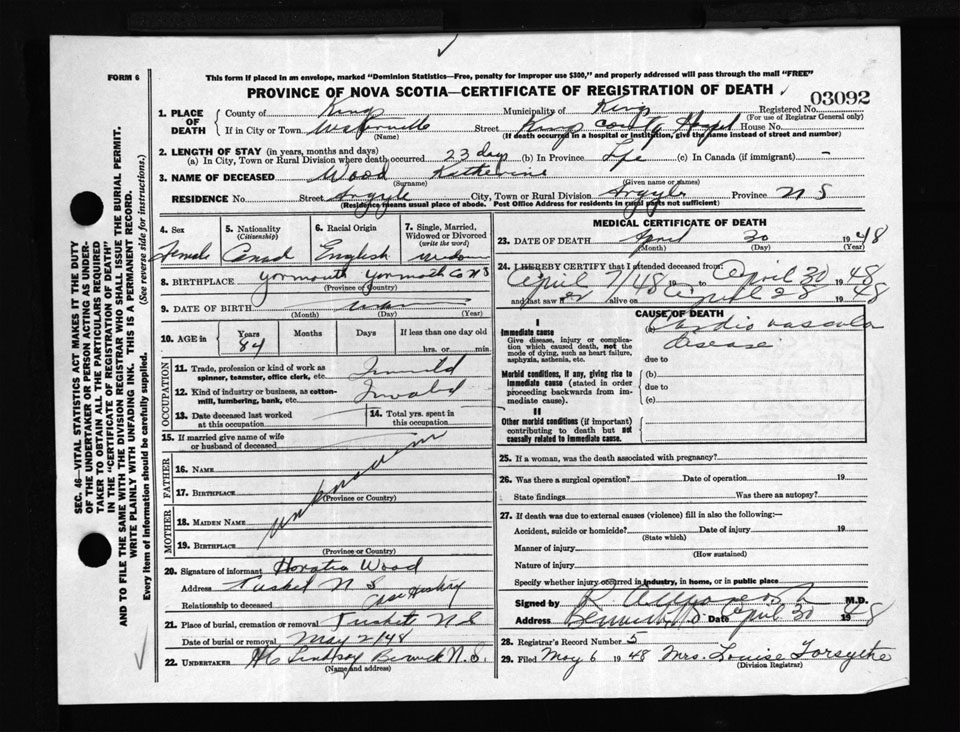 FORM 6
This form if placed in an envelope, marked "Dominion Statistics—Free, penalty for improper use $300," and properly addressed will pass through the mail "FREE"
PROVINCE OF NOVA SCOTIA—CERTIFICATE OF REGISTRATION OF DEATH
03092
SEC. 46—VITAL STATISTICS ACT MAKES IT THE DUTY
OF THE UNDERTAKER OR PERSON ACTING AS UNDER-
TAKER TO OBTAIN ALL THE PARTICULARS REQUIRED
IN THE "CERTIFICATE OF REGISTRATION OF DEATH"
AND TO FILE THE SAME WITH THE DIVISION REGISTRAR WHO SHALL ISSUE THE BURIAL PERMIT.
WRITE PLAINLY WITH UNFADING INK. THIS IS A PERMANENT RECORD.
Every item of Information should be carefully supplied. (See reverse side for instructions.)
1. PLACE OF DEATH
County of Kings Municipality of Kings Registered No.
(For use of Registrar General only)
If in City or Town Waterville Street Kings County Hospit House No.
(Name) (If death occurred in a hospital or institution, give the name instead of street and number)
2. LENGTH OF STAY (in years, months and days)
(a) In City, Town or Rural Division where death occurred 23 days (b) In Province Life (c) In Canada (if immigrant) -
3. NAME OF DECEASED Wood Katherine
(Surname) (Given name or names)
RESIDENCE No. Street Argyle City, Town or Rural Division Argyle Province N S
(Residence means usual place of abode. Post Office Address for residents in rural parts not sufficient)
4. Sex Female
5. Nationality (Citizenship) Canad
6. Racial Origin English
7. Single, Married, Widowed or Divorced (write the word) Widow
8. BIRTHPLACE Yarmouth Yarmouth Co N S
(Province or County)
9. DATE OF BIRTH
(Month) (Day) (Year)
10. AGE in Years 84 Months Days If less than one day old
hrs. or min.
OCCUPATION
11. Trade, profession or kind of work as spinner, teamster, office clerk, etc. Invalid
12. Kind of industry or business, as cotton-mill, lumbering, bank, etc. Invalid
13. Date deceased last worked at this occupation
14. Total yrs. spent in this occupation
15. If married give name of wife or husband of deceased
FATHER
16. NAME
17. BIRTHPLACE
(Province or Country)
unknown
MOTHER
18. MAIDEN NAME
19. BIRTHPLACE
(Province or Country)
20. Signature of informant Horatio Wood
Address Tusket N. S
Relationship to deceased Case History
21. Place of burial, cremation or removal Tusket N S
Date of burial or removal May 2/48
22. UNDERTAKER Lindsay Berwick N. S.
(Name and address)
MEDICAL CERTIFICATE OF DEATH
23. DATE OF DEATH April 30 1948
(Month) (Day) (Year)
24. I HEREBY CERTIFY that I attended deceased from
April 7/48 to April 30 1948
and last saw her alive on April 28 1948
CAUSE OF DEATH
I
Immediate cause
Give disease, injury or complication which caused death, not the mode of dying, such as heart failure, asphyxia, asthenia, etc.
(a) Cardio vascular
disease
due to
Morbid conditions, if any, giving rise to immediate cause (stated in order proceeding backwards from immediate cause).
(b)
due to
(c)
II
Other morbid conditions (if important) contributing to death but not causally related to immediate cause.
25. If a woman, was the death associated with pregnancy?
26. Was there a surgical operation? Date of operation 19
State findings Was there an autopsy?
27. If death was due to external causes (violence) fill in also the following:—
Accident, suicide or homicide? Date of injury 19
(State which)
Manner of injury
(How sustained)
Nature of injury
Specify whether injury occurred in industry, in home, or in public place
Signed by M.D.
Address Date April 30 1948
28. Registrar's Record Number 5
29. Filed May 6 1948 Mrs. Louise Forsythe
(Division Registrar)